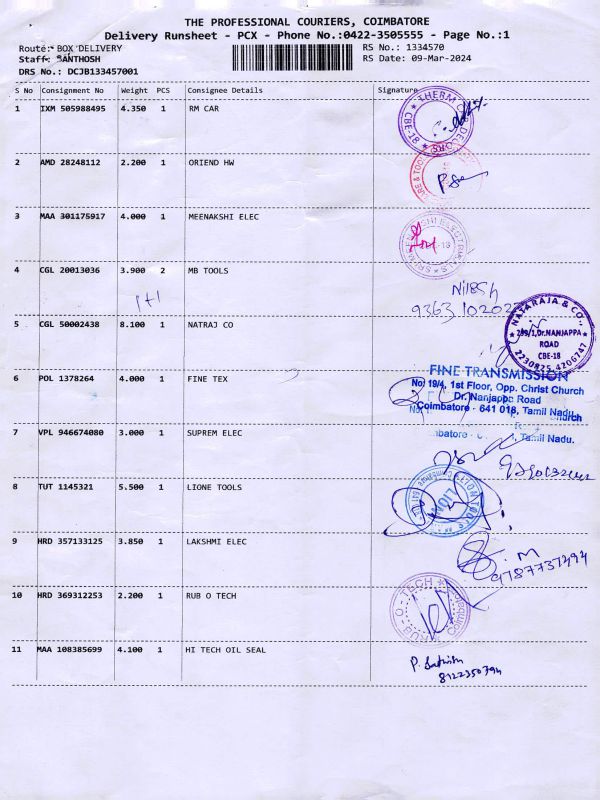 THE PROFESSIONAL COURIERS, COIMBATORE
Delivery Runsheet - PCX - Phone No.:0422-3505555 - Page No.:1
Route: BOX DELIVERY
RS No.: 1334570
Staff: SANTHOSH
RS Date: 09-Mar-2024
DRS No.: DCJB133457001
S No Consignment No Weight PCS Consignee Details Signature
1 IXM 505988495 4.350 1 RM CAR
THERM DECORS CBE-18
2 AMD 28248112 2.200 1 ORIEND HW
3 MAA 301175917 4.000 1 MEENAKSHI ELEC
4 CGL 20013036 3.900 2 MB TOOLS
1+1
Nilesh
5 CGL 50002438 8.100 1 NATRAJ CO
NATARAJA & CO.,
299/1, Dr.NANJAPPA
ROAD
CBE-18
2230925, 4206747
6 POL 1378264 4.000 1 FINE TEX
FINE TRANSMISSION
No: 19/4, 1st Floor, Opp. Christ Church
Dr. Nanjappa Road
Coimbatore - 641 018, Tamil Nadu.
7 VPL 946674080 3.000 1 SUPREM ELEC
8 TUT 1145321 5.500 1 LIONE TOOLS
LION
9 HRD 357133125 3.850 1 LAKSHMI ELEC
9787737494
10 HRD 369312253 2.200 1 RUB O TECH
RUB - O - TECH
11 MAA 108385699 4.100 1 HI TECH OIL SEAL
8122350794